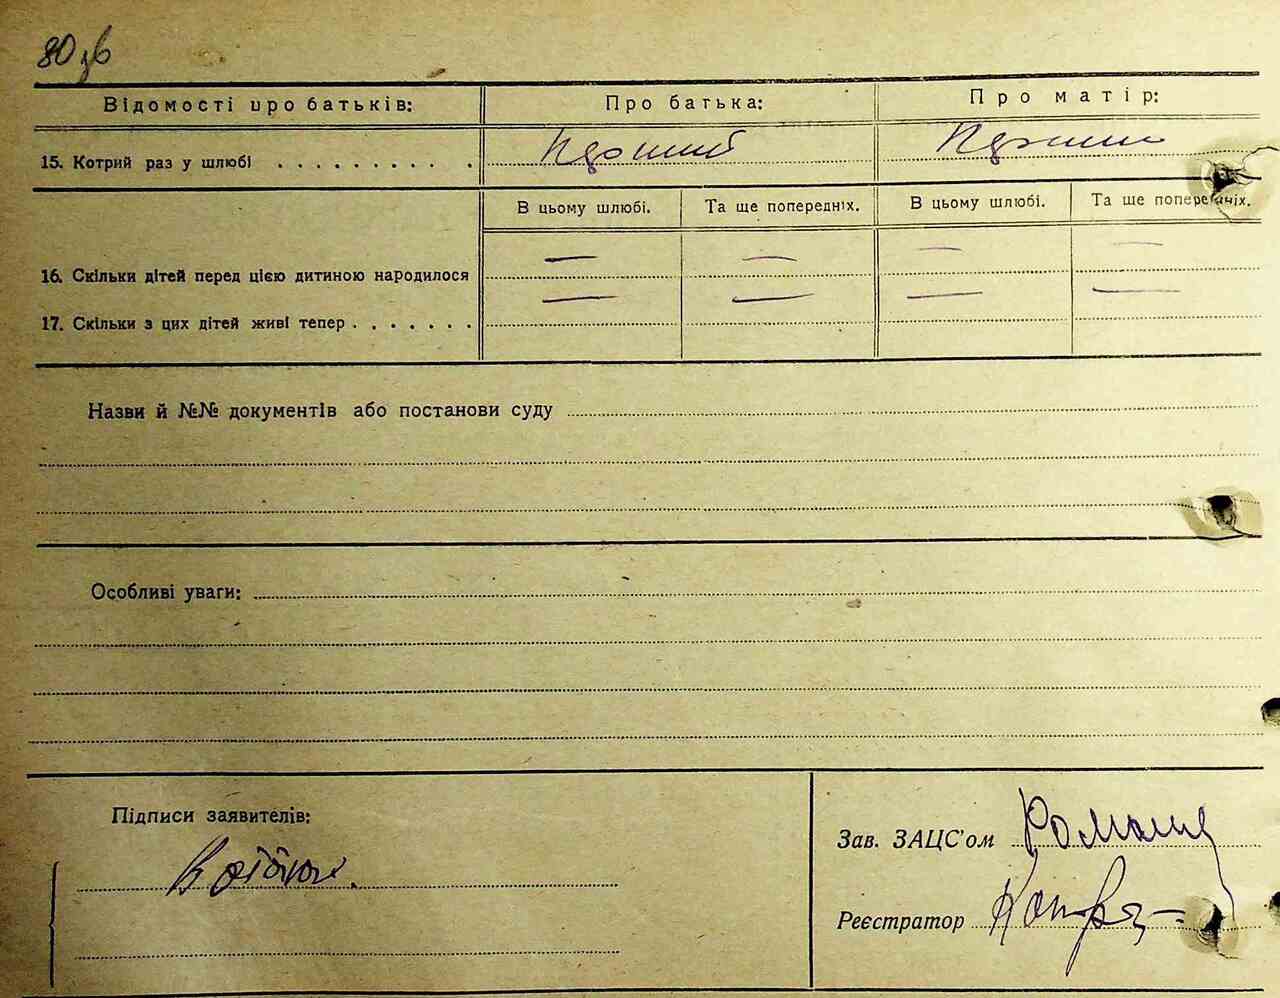 80 зв
Відомості про батьків: Про батька: Про матір:
15. Котрий раз у шлюбі . . . . . . . . . . Перший Перший
В цьому шлюбі. Та ще попередніх. В цьому шлюбі. Та ще попередніх.
16. Скільки дітей перед цією дитиною народилося — — — —
17. Скільки з цих дітей живі тепер . . . . . . . — — — —
Назви й №№ документів або постанови суду
Особливі уваги:
Підписи заявителів:
Зав. ЗАЦС'ом
Реєстратор